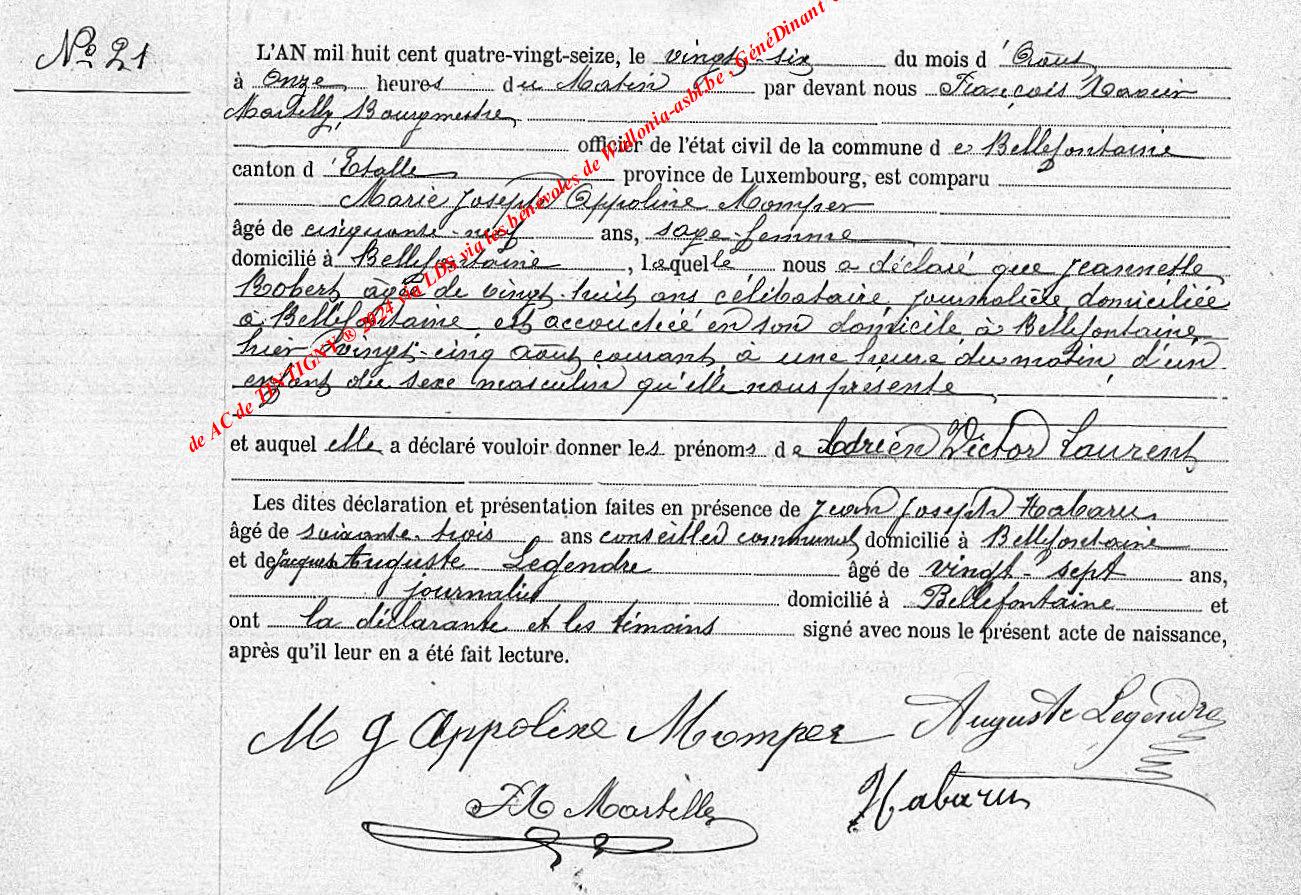 No 21
L'AN mil huit cent quatre-vingt-seize, le vingt-six du mois d'Août
à onze heures du matin par devant nous François Xavier
Martilly, Bourgmestre,
officier de l'état civil de la commune de Bellefontaine
canton d'Etalle province de Luxembourg, est comparu
Marie Joseph Appoline Momper
âgé de cinquante-neuf ans, sage-femme,
domicilié à Bellefontaine, laquelle nous a déclaré que Jeannette
Robert âgée de vingt-huit ans célibataire, journalière, domiciliée
à Bellefontaine, est accouchée en son domicile à Bellefontaine
hier vingt-cinq Août courant, à une heure du matin d'un
enfant du sexe masculin qu'elle nous présente,
et auquel elle a déclaré vouloir donner les prénoms de Adrien Victor Laurent
Les dites déclaration et présentation faites en présence de Jean Joseph Habaru
âgé de soixante-trois ans conseiller communal domicilié à Bellefontaine
et de Jacques Auguste Legendre âgé de vingt-sept ans,
journalier domicilié à Bellefontaine et
ont la déclarante et les témoins signé avec nous le présent acte de naissance,
après qu'il leur en a été fait lecture.
M J Appoline Momper Auguste Legendre
FX Martilly Habaru
de AC de TINTIGNY ® 2024 via LDS via les bénévoles de Wallonia-asbl.be, GénéDinant